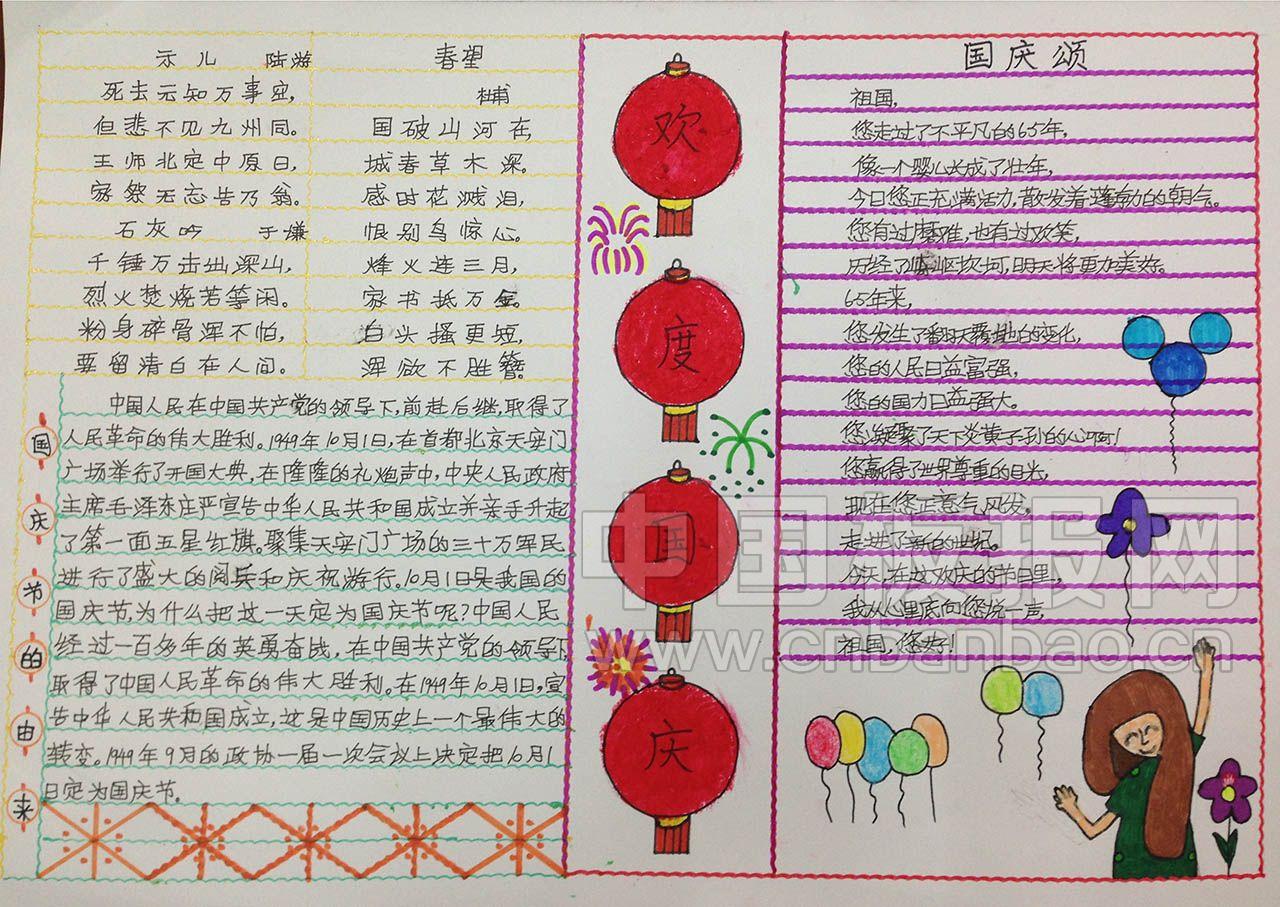 示儿 陆游
死去元知万事空,
但悲不见九州同。
王师北定中原日,
家祭无忘告乃翁。
石灰吟 于嫌
千锤万击出深山,
烈火焚烧若等闲。
粉身碎骨浑不怕,
要留清白在人间。
春望
杜甫
国破山河在,
城春草木深。
感时花溅泪,
恨别鸟惊心。
烽火连三月,
家书抵万金。
白头搔更短,
浑欲不胜簪。
国庆节的由来
中国人民在中国共产党的领导下,前赴后继,取得了
人民革命的伟大胜利。1949年10月1日,在首都北京天安门
广场举行了开国大典,在隆隆的礼炮声中,中央人民政府
主席毛泽东庄严宣告中华人民共和国成立并亲手升起
了第一面五星红旗。聚集天安门广场的三十万军民
进行了盛大的阅兵和庆祝游行。10月1日是我国的
国庆节,为什么把这一天定为国庆节呢?中国人民
经过一百多年的英勇奋战,在中国共产党的领导下
取得了中国人民革命的伟大胜利。在1949年10月1日,宣
告中华人民共和国成立,这是中国历史上一个最伟大的
转变。1949年9月的政协一届一次会议上决定把10月1
日定为国庆节。
欢
度
国
庆
国庆颂
祖国,
您走过了不平凡的65年,
像一个婴儿长成了壮年,
今日您正充满活力,散发着蓬勃的朝气。
您有过磨难,也有过欢笑,
历经了崎岖坎坷,明天将更加美好。
65年来,
您发生了翻天覆地的变化,
您的人民日益富强,
您的国力日益强大。
您凝聚了天下炎黄子孙的心啊!
您赢得了世界尊重的目光;
现在您正意气风发。
走进了新的世纪。
今天,在这欢庆的节日里,
我从心里底向您说一声,
祖国,您好!
中国板报网
www.cnbanbao.cn